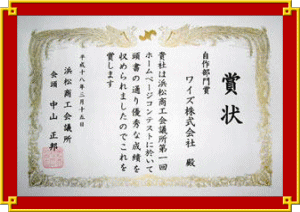 賞状
自作部門賞
ワイズ株式会社 殿
貴社は浜松商工会議所第一回
ホームページコンテストに於いて
頭書の通り優秀な成績を
収められましたのでこれを
賞します
平成十八年二月十五日
浜松商工会議所
会頭 中山正邦